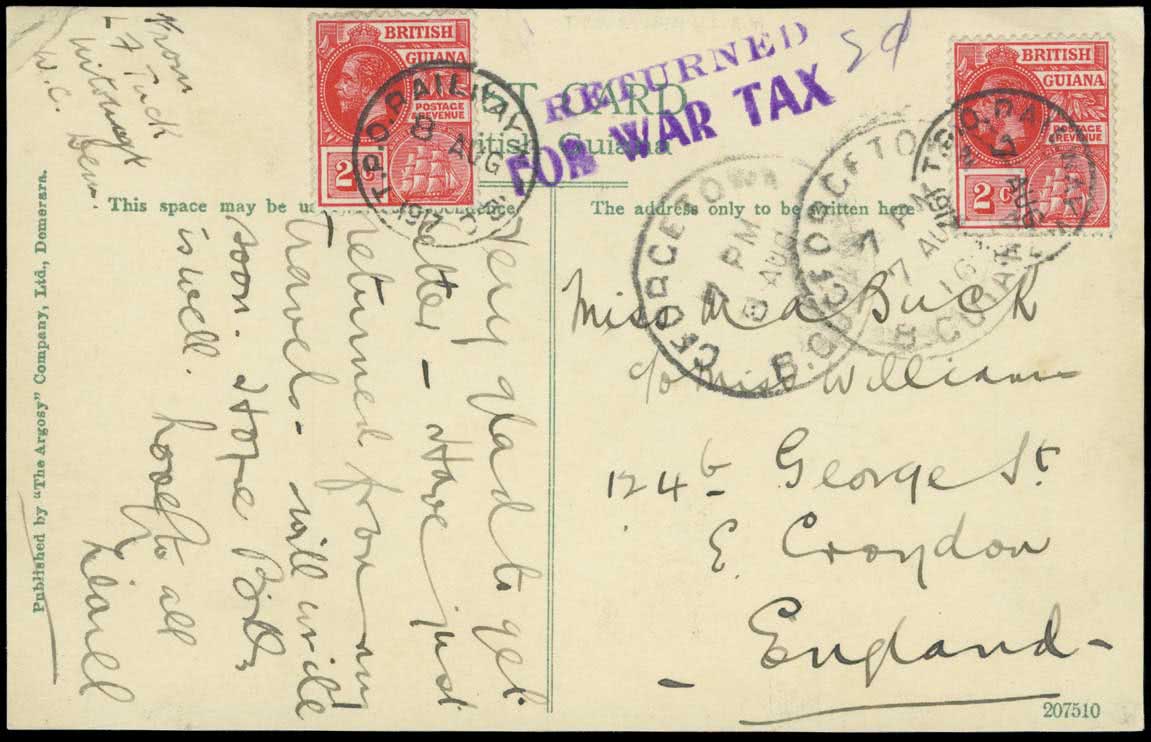 From
F Tuck
W.C. Dem.
BRITISH
GUIANA
POSTAGE
& REVENUE
2 C
T.P.O. RAILWAY
8
AUG
191
RETURNED
FOR WAR TAX
2d
POST CARD
British Guiana
BRITISH
GUIANA
POSTAGE
& REVENUE
2 C
T.P.O. RAILWAY
7
AUG
191
GEORGETOWN
7 PM
8 AUG
B. GUIANA
GEORGETOWN
7 PM
7 AUG
16
B. GUIANA
This space may be
The address only to be written here
Published by "The Argosy" Company, Ltd., Demerara.
Very glad to get
letter - Have just
returned from my
travels - will write
soon. Hope
is well. Love to all
Lionel
Miss M a Buck
c/o Miss Williams
124b George St
E. Croydon
England -
207510